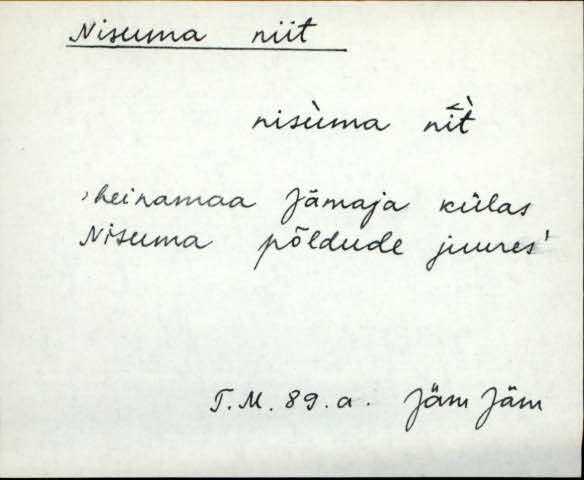 Nisuma niit
nisùma nī̬̀t
'heinamaa Jämaja külas
Nisuma põldude juures'
T.M. 89.a. Jäm Jäm